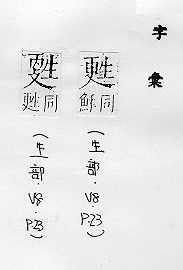 字彙
甦
鮛同
(生部.V8.P.23)
甦
甦同
(生部.V8.P.23)